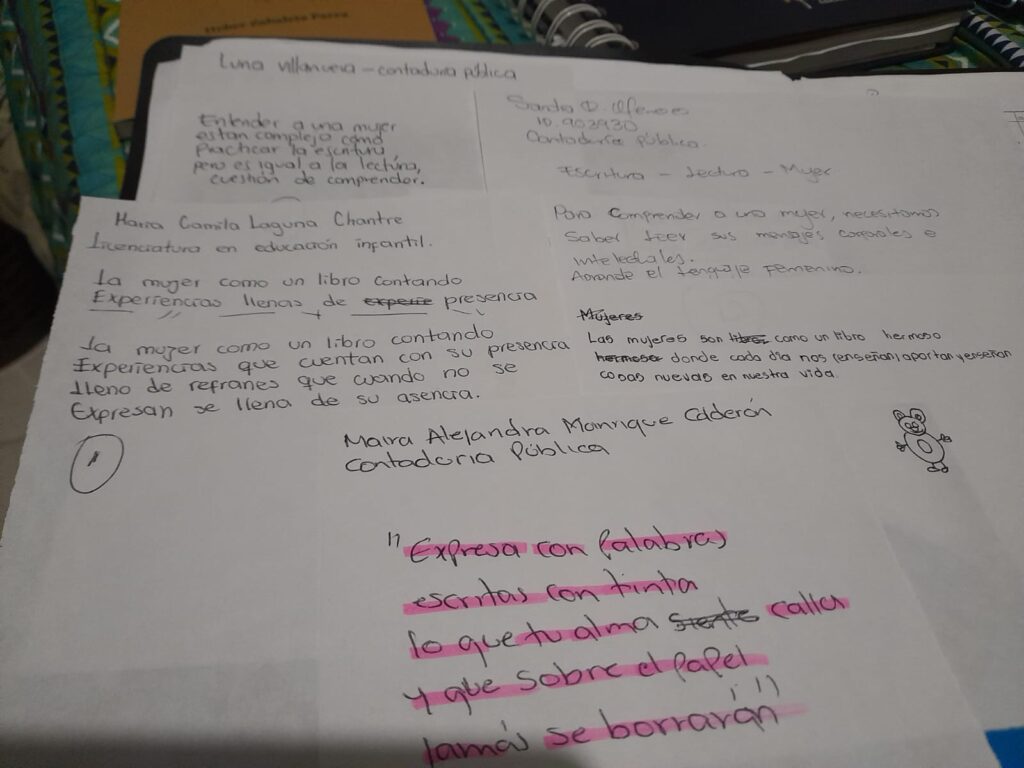 Luna Villanueva - contaduria pública
Entender a una mujer
es tan complejo como
practicar la escritura,
pero es igual a la lectura,
cuestión de comprender.
Sandra D.
10.903930
Contaduria Pública
Escritura - Lectura - Mujer
Para comprender a una mujer, necesitamos
Saber leer sus mensajes corporales e
intelectuales.
Aprende el lenguaje femenino.
Maria Camila Laguna Chantre
Licenciatura en educación infantil.
La mujer como un libro contando
Experiencias llenas de experie presencia
La mujer como un libro contando
Experiencias que cuentan con su presencia
lleno de refranes que cuando no se
Expresan se llena de su asencia.
Mujeres
Las mujeres son libro como un libro hermoso
hermoso donde cada día nos (enseñan) aportan y enseñan
cosas nuevas en nuestra vida.
Maira Alejandra Manrique Calderón
Contaduria Pública
" Expresa con palabras
escritas con tinta
lo que tu alma siente calla
y que sobre el papel
jamás se borrarán "